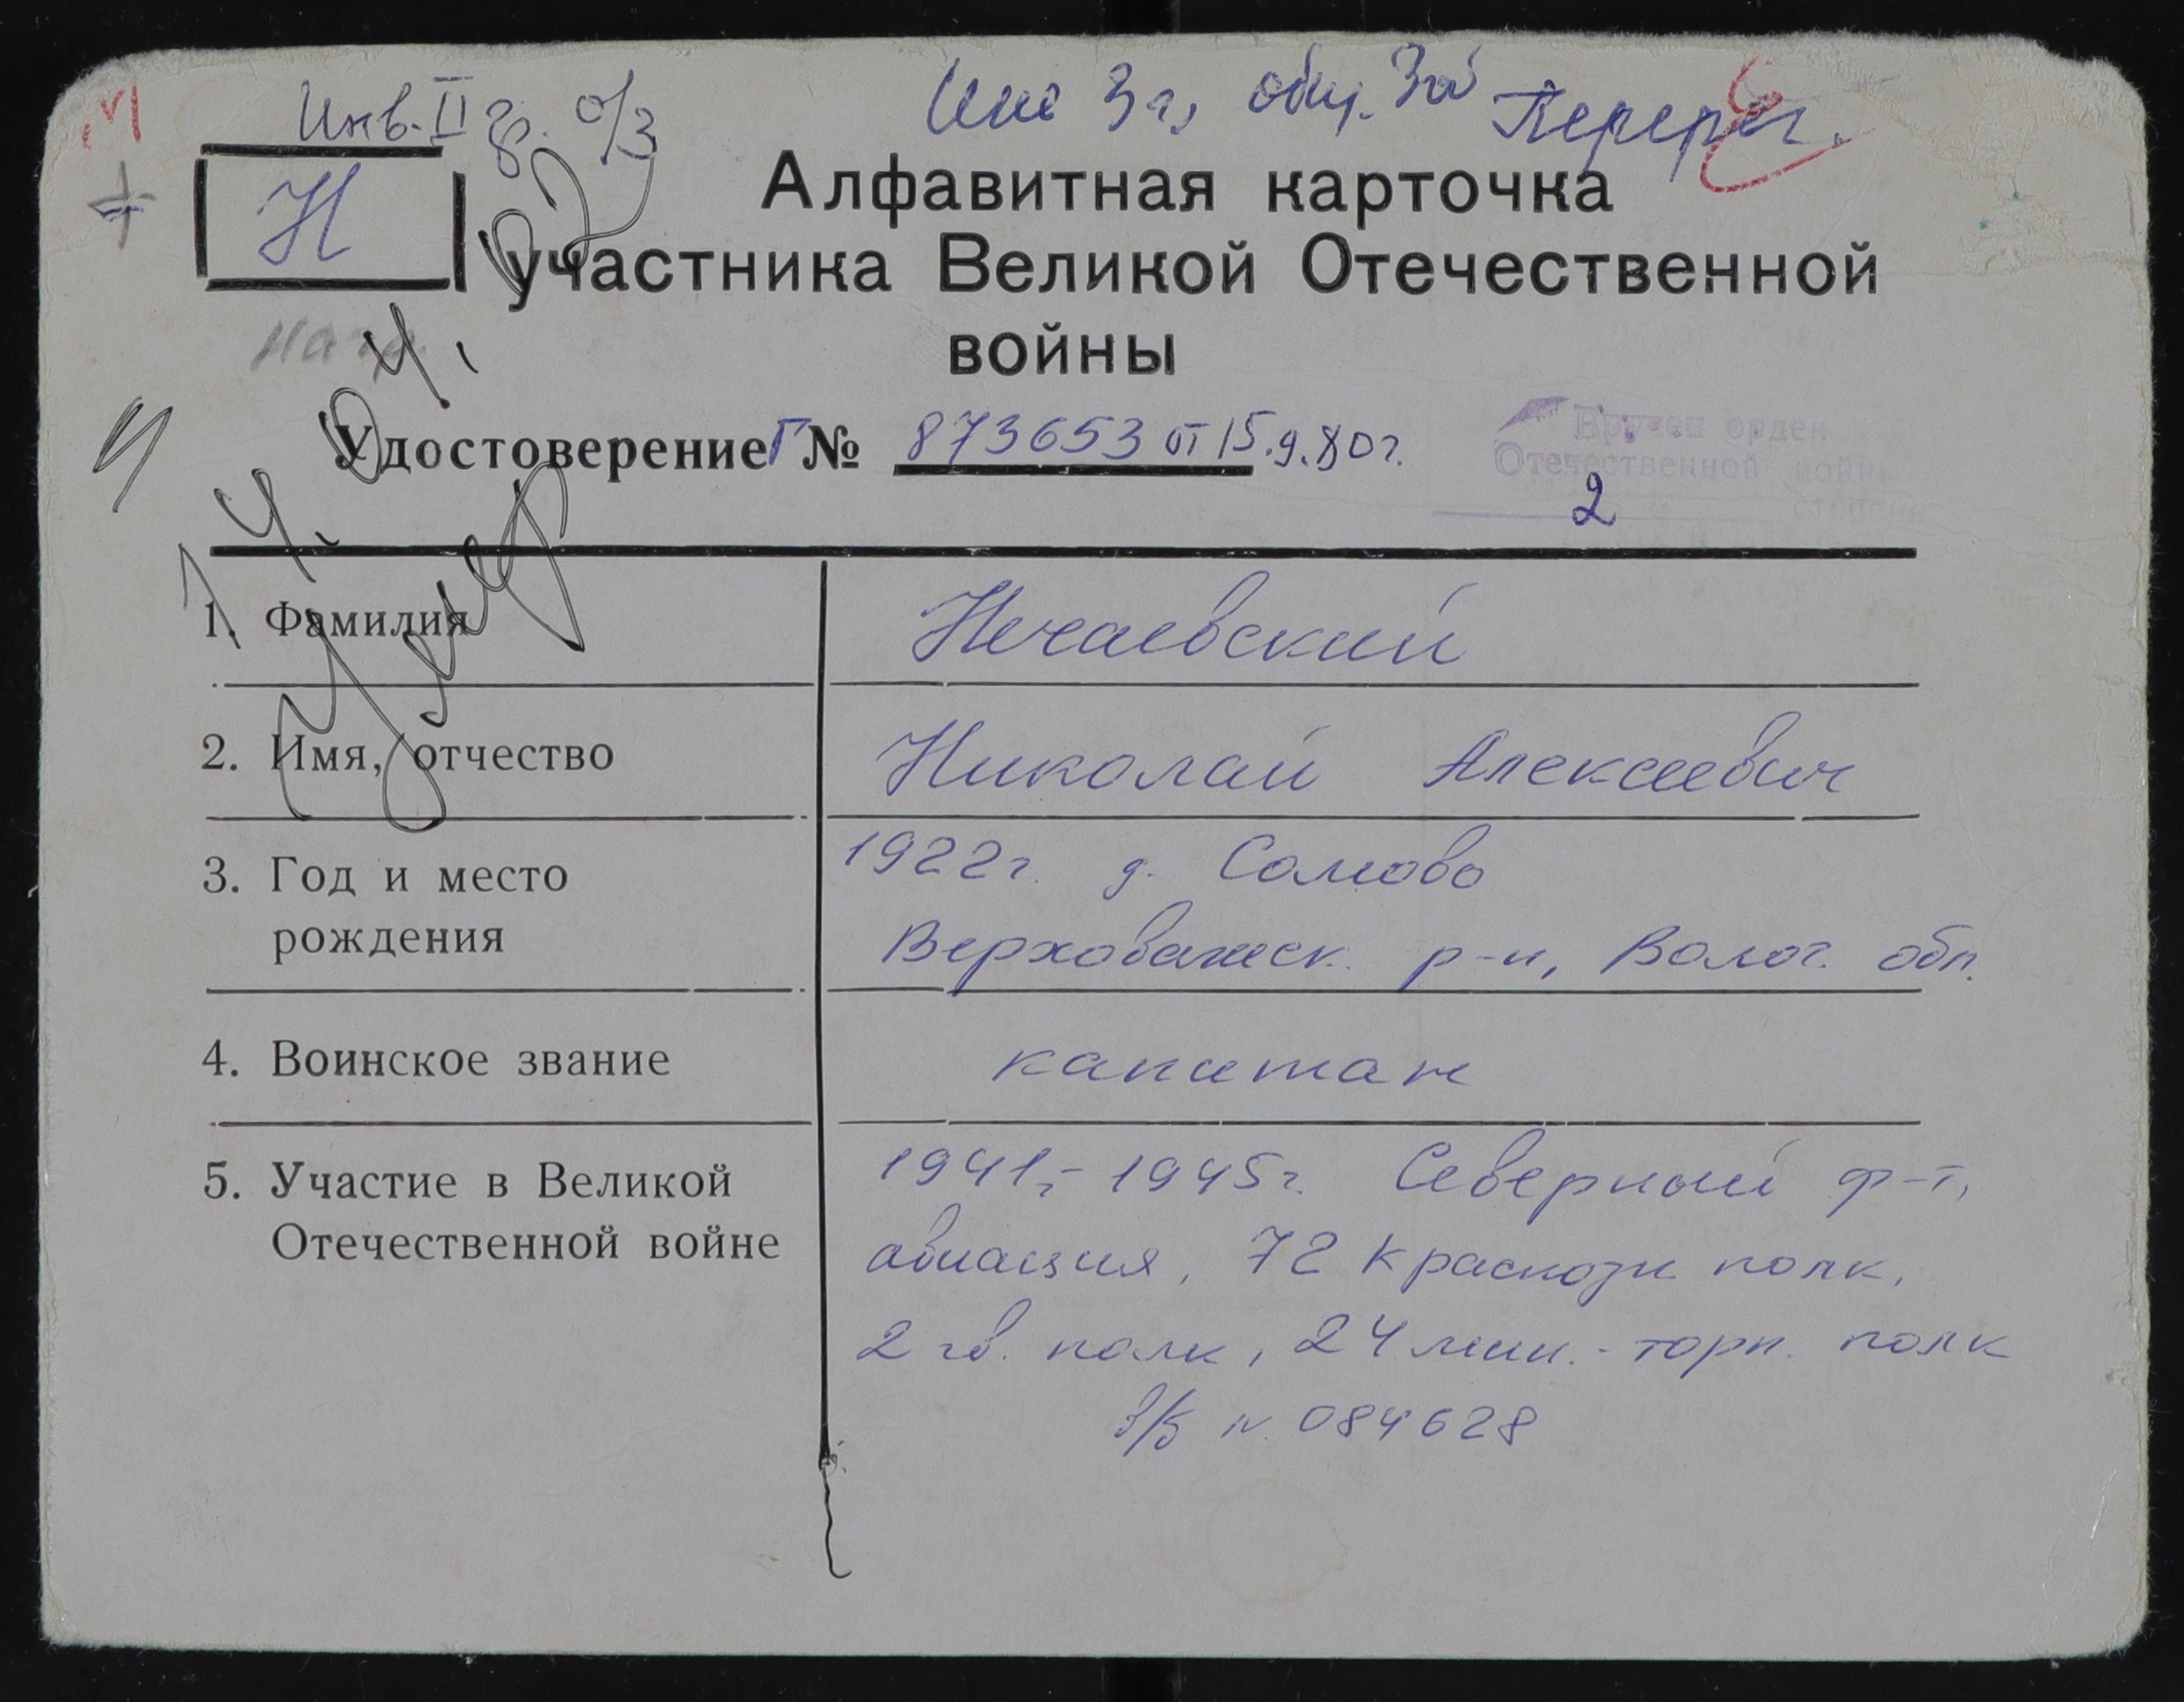 Инв. II гр. о/з
Инв 3 г, общ. Заб Перерег.
Н
Алфавитная карточка
участника Великой Отечественной
войны
Удостоверение Г № 873653 от 15.9.80 г.
Вручен орден
Отечественной войны
2 степени
Умер
1. Фамилия Нечаевский
2. Имя, отчество Николай Алексеевич
3. Год и место 1922 г. д. Сомово
рождения Верховажск. р-н, Волог. обл.
4. Воинское звание капитан
5. Участие в Великой 1941 г. - 1945 г. Северный ф-т,
Отечественной войне авиация, 72 Краснозн полк,
2 гв. полк, 24 мин.-торп. полк
в/б N. 084628